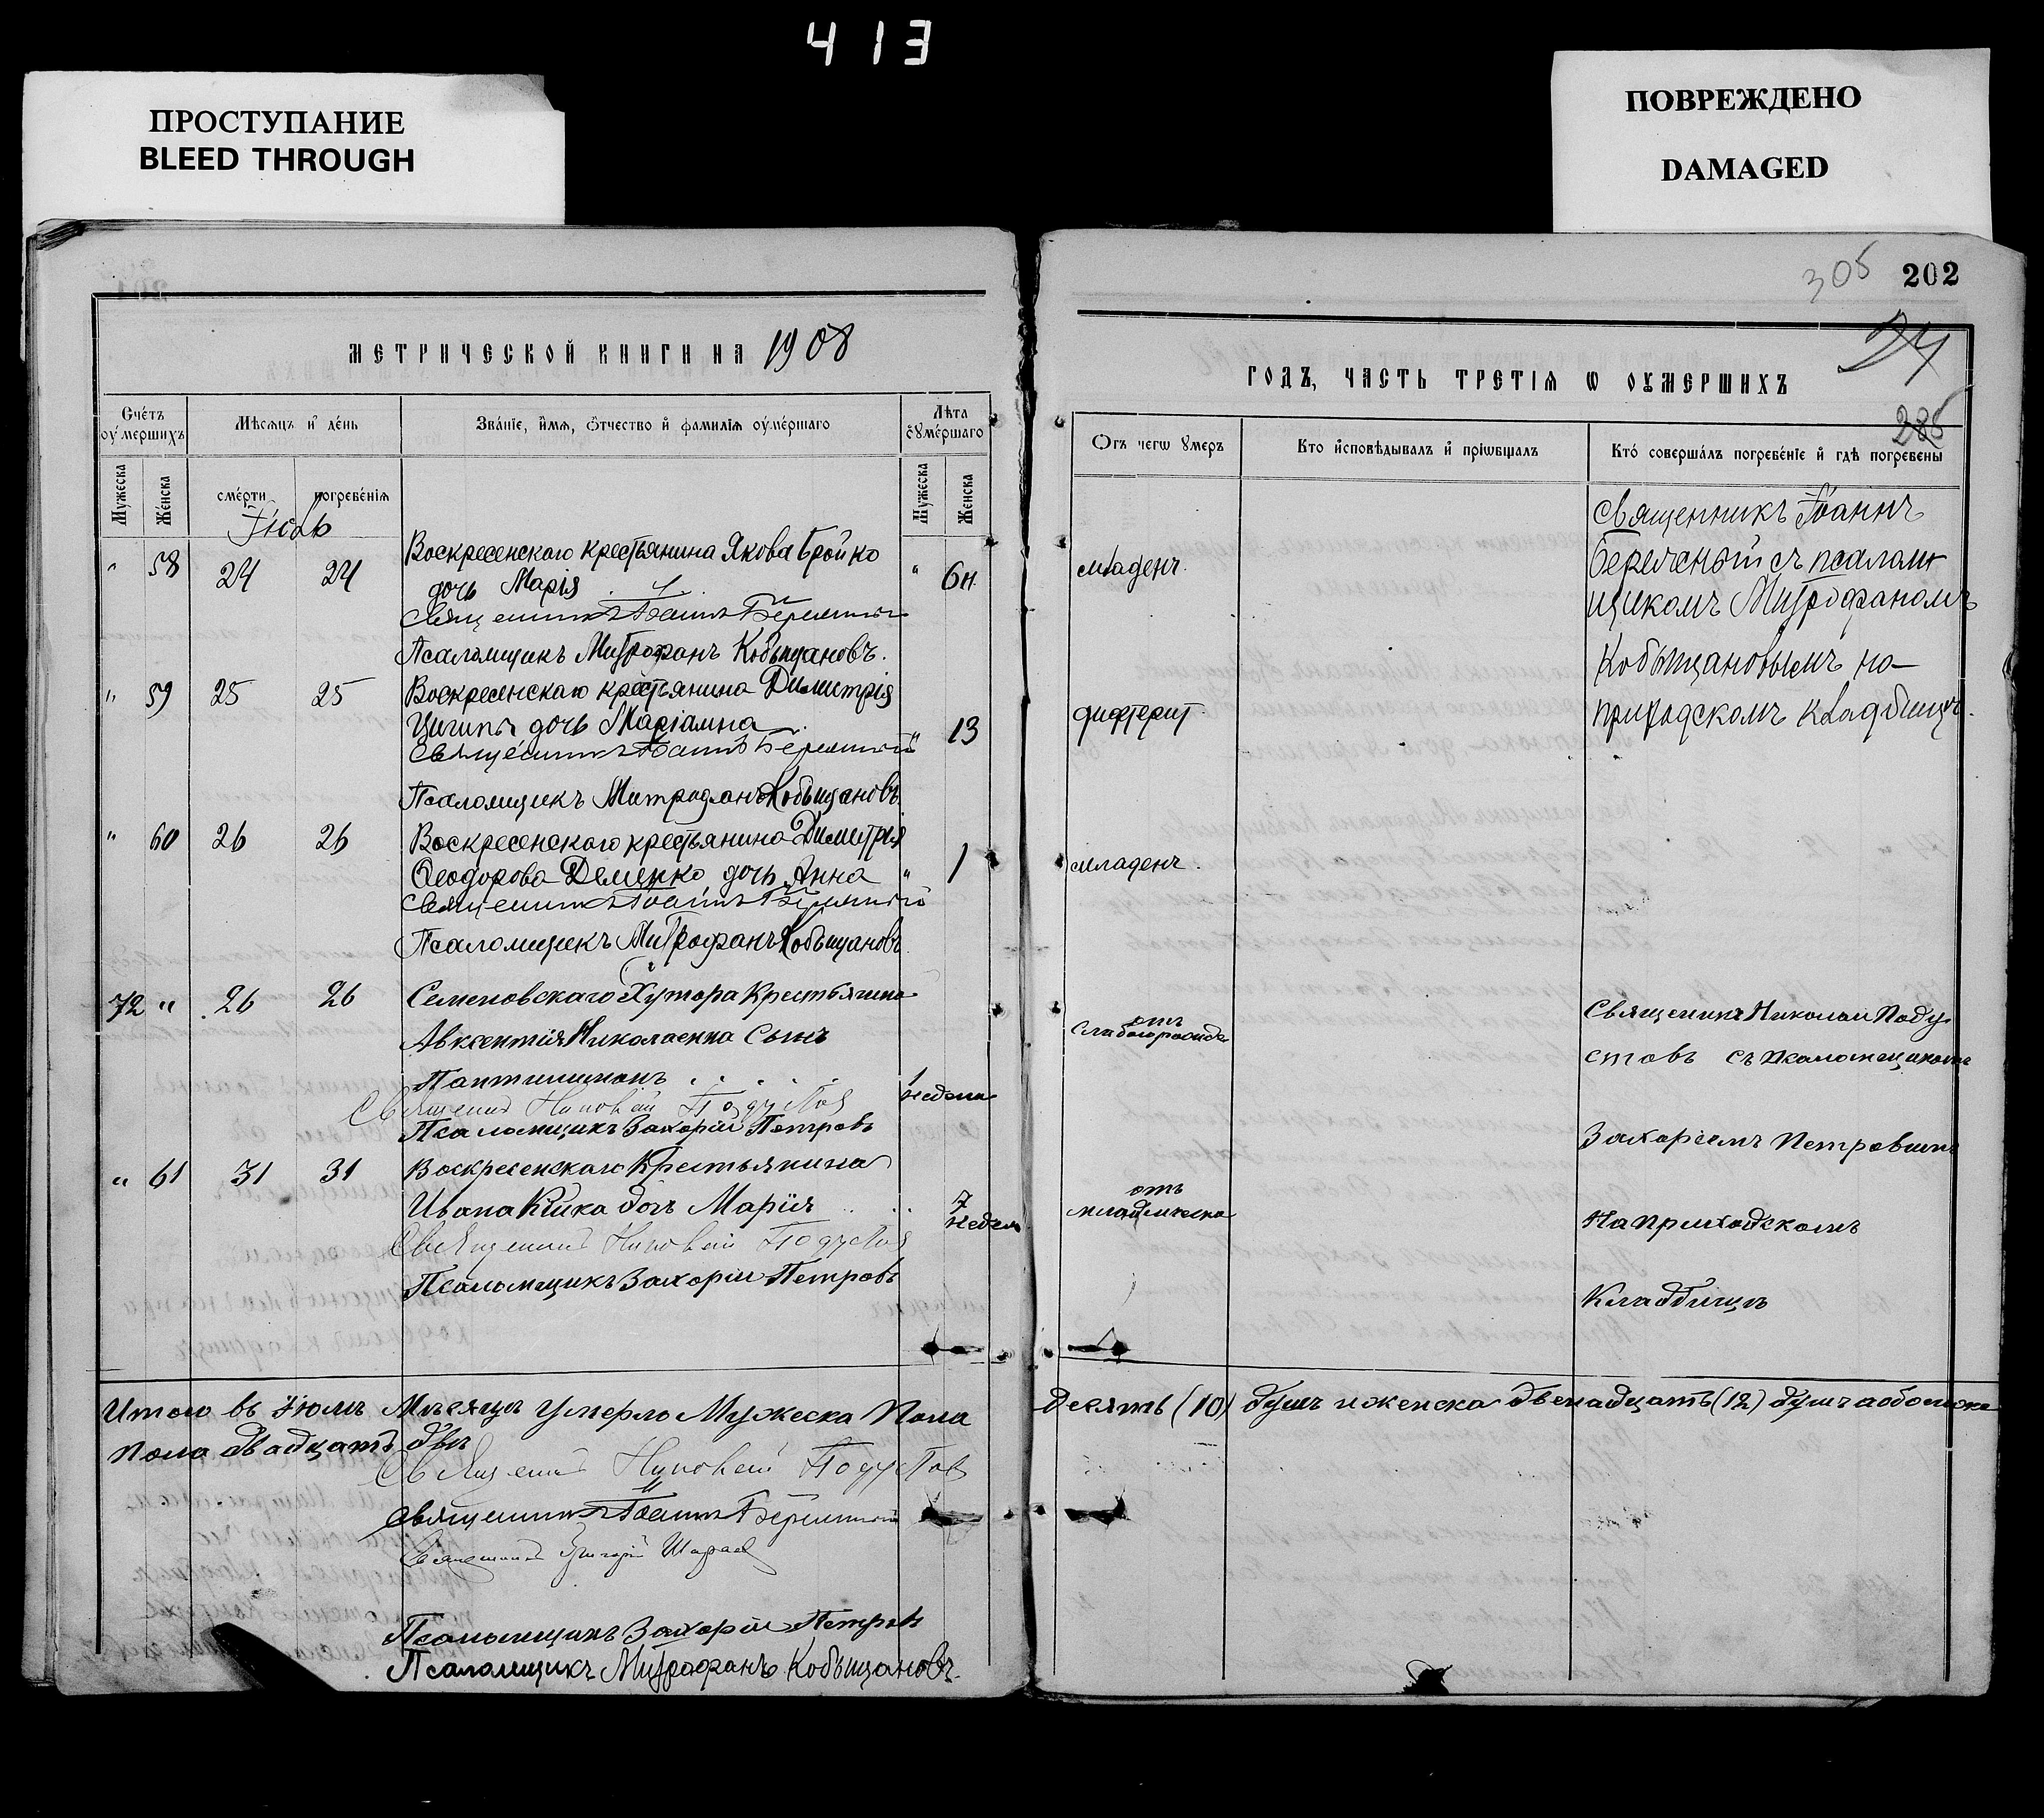 413
ПРОСТУПАНИЕ
BLEED THROUGH
ПОВРЕЖДЕНО
DAMAGED
305 202
24
286
МЕТРИЧЕСКОЙ КНИГИ НА 1908
Счетъ оумершихъ
Мѣсяцъ и день
Званіе, имя, отчество и фамилія оумершаго
Лѣта оумершаго
Мужеска
Женска
смерти
погребенія
Мужеска
Женска
Іюль
" 58 24 24 Воскресенскаго крестьянина Якова Бройко " 6 н.
дочь Марія
Священникъ Іоаннъ
Псаломщикъ Митрофанъ Кобыщановъ.
" 59 25 25 Воскресенскаго крестьянина Димитрія
дочь Маріамна " 13
Священникъ Іоаннъ
Псаломщикъ Митрофанъ Кобыщановъ
" 60 26 26 Воскресенскаго крестьянина Димитрія
Ѳеодорова Деменко дочь Анна " 1
Священникъ Іоаннъ
Псаломщикъ Митрофанъ Кобыщановъ
72 " 26 26 Семеновскаго Хутора Крестьянина
Авксентія Николаенка Сынъ
Пантилимонъ 1 неделя
Священникъ Николай Подустов
Псаломщикъ Захарій Петровъ
" 61 31 31 Воскресенскаго Крестьянина
Ивана Кійка дочь Марія 7 недел
Священникъ Николай Подустов
Псаломщикъ Захарій Петровъ
Итого въ Іюлѣ Мѣсяцѣ Умерло Мужеска Пола
Пола двадцать двѣ
Священникъ Николай Подустов
Священникъ Іоаннъ
Священникъ Григорій
Псаломщикъ Захарій Петровъ
Псаломщикъ Митрофанъ Кобыщановъ.
ГОДЪ, ЧАСТЬ ТРЕТІЯ Ѡ ОУМЕРШИХЪ
Отъ чегѡ умеръ
Кто исповѣдывалъ и пріѡбщалъ
Кто совершалъ погребеніе и гдѣ погребены
младенч.
дифтерит.
младенч.
отъ
отъ
Священникъ Іоаннъ
съ псалом
щикомъ Митрофаномъ
Кобыщановымъ на
приходскомъ кладбищѣ.
Священникъ Николай Поду
стовъ съ псаломщикомъ
Захаріемъ Петровымъ
На приходскомъ
Кладбищѣ
десять (10) душъ и женска двенадцать (12) душъ а обоего